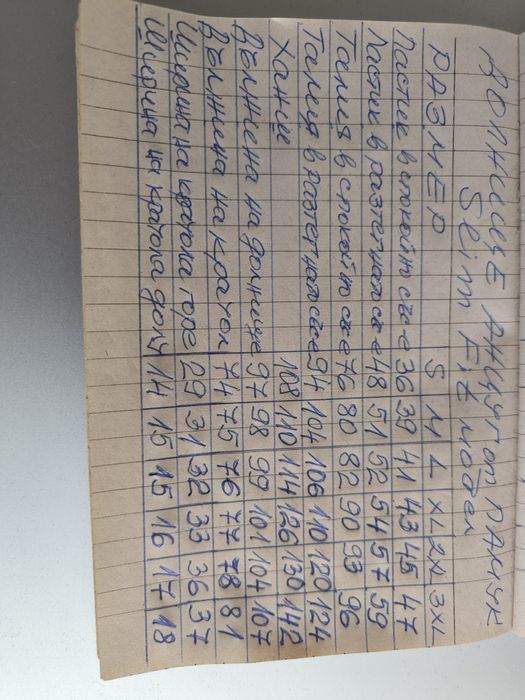 ДОЛНИЩЕ АНЦУГ ОТ ПАМУК
Slim Fit модел
РАЗМЕР S M L XL 2XL 3XL
Ластик в спокойно със-е 36 39 41 43 45 47
Ластик в разтегнато със-е 48 51 52 54 57 59
Талия в спокойно със-е 76 80 82 90 93 96
Талия в разтегнато със-е 94 104 106 110 120 124
Ханш 108 110 114 126 130 142
Дължина на долнище 97 98 99 101 104 107
Дължина на крачол 74 75 76 77 78 81
Ширина на крачола горе 29 31 32 33 36 37
Ширина на крачола долу 14 15 15 16 17 18